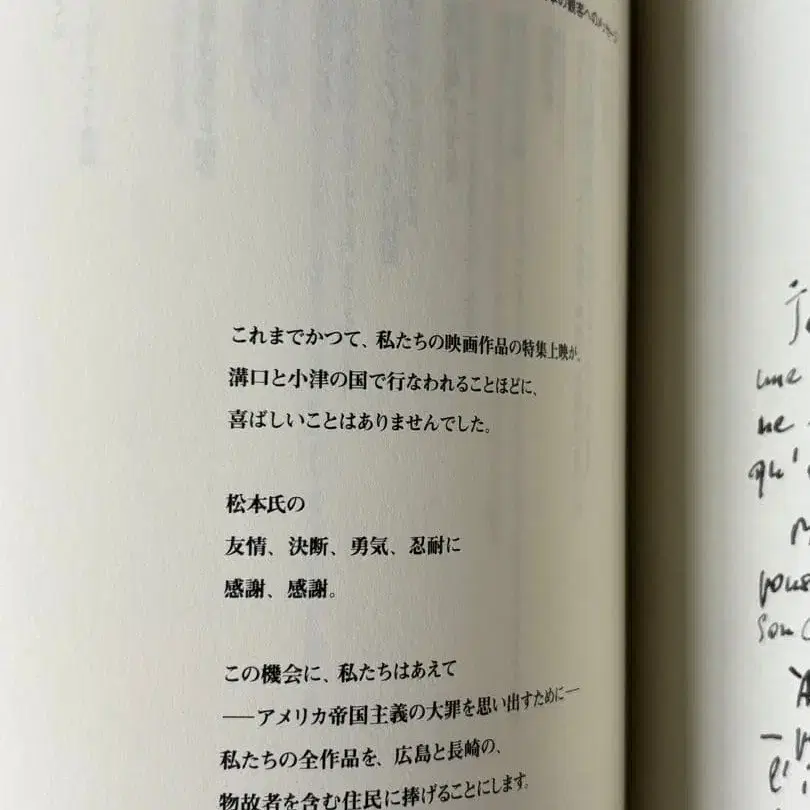 の観客へのメッセージ
これまでかつて、私たちの映画作品の特集上映が、
溝口と小津の国で行なわれることほどに、
喜ばしいことはありませんでした。
松本氏の
友情、決断、勇気、忍耐に
感謝、感謝。
この機会に、私たちはあえて
——アメリカ帝国主義の大罪を思い出すために—
私たちの全作品を、広島と長崎の、
物故者を含む住民に捧げることにします。
une
ne
qu'
vous
son